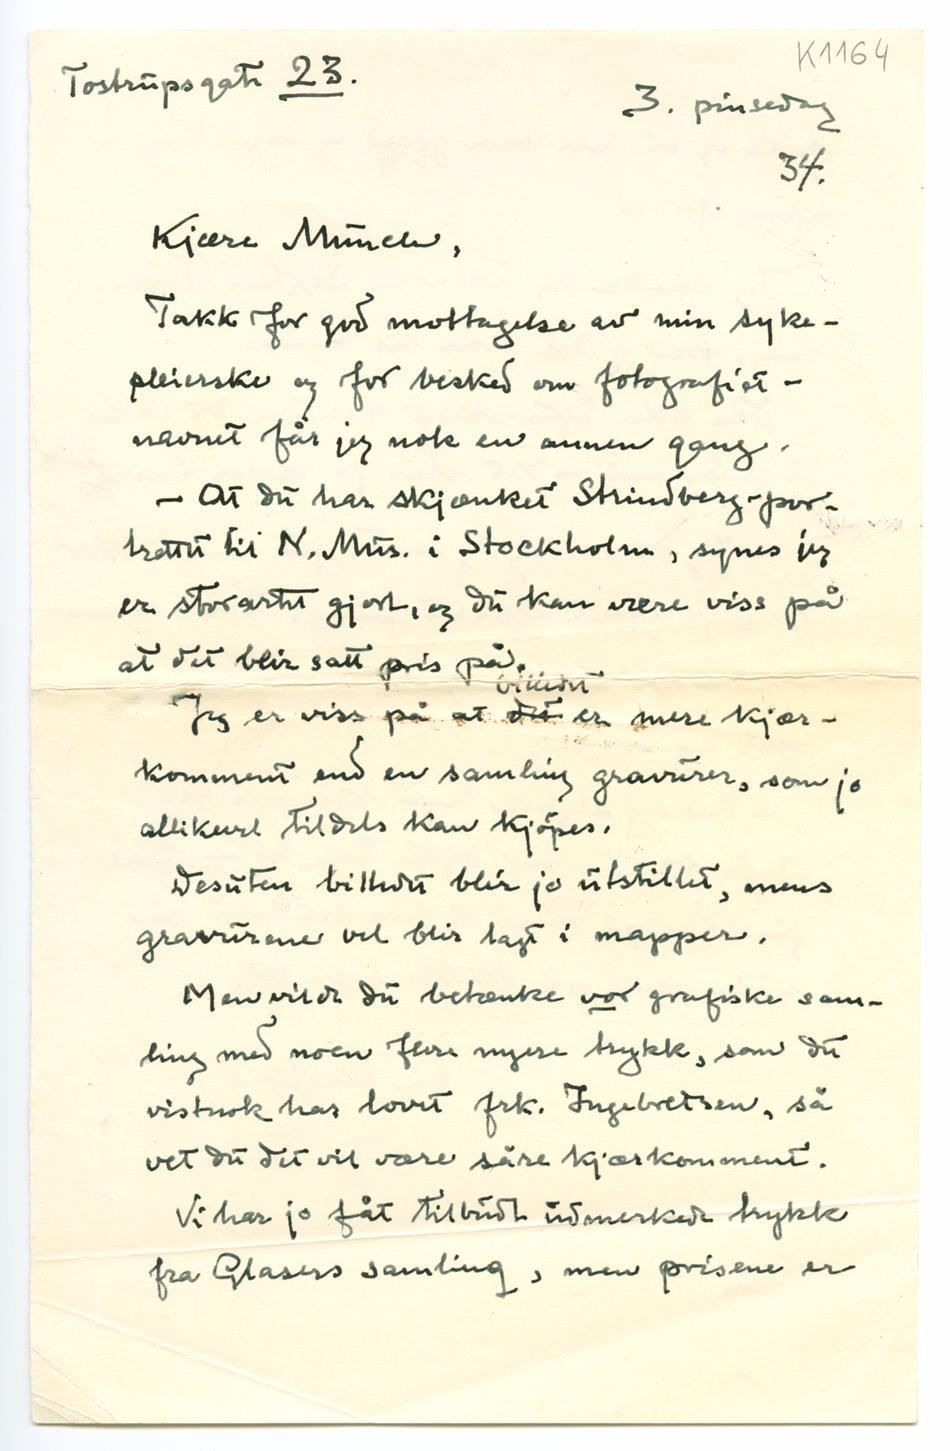 K1164
Tostrupsgatr 23.
3. pinsedag
34.
Kjære Munch,
Takk for god mottagelse av min syke-
pleierske og for besked om fotografiet –
navnet får jeg nok en annen gang.
– At du har skjænket Strindberg-por-
trættet til N. Mus. i Stockholm, synes jeg
er storartet gjort, og du kan være viss på
at det blir satt pris på.
billedet
Jeg er viss på at det er mere kjær-
komment end en samling gravurer, som jo
allikevel tildels kan kjøpes.
Desuten billedet blir jo utstillet, mens
gravurene vel blir lagt i mapper.
Men vilde du betænke vor grafiske sam-
ling med noen flere nyere trykk, som du
vistnok har lovet frk. Ingebretsen, så
vet du det vil være såre kjærkomment.
Vi har jo fåt tilbudt udmerkede trykk
fra Glasers samling, men prisene er